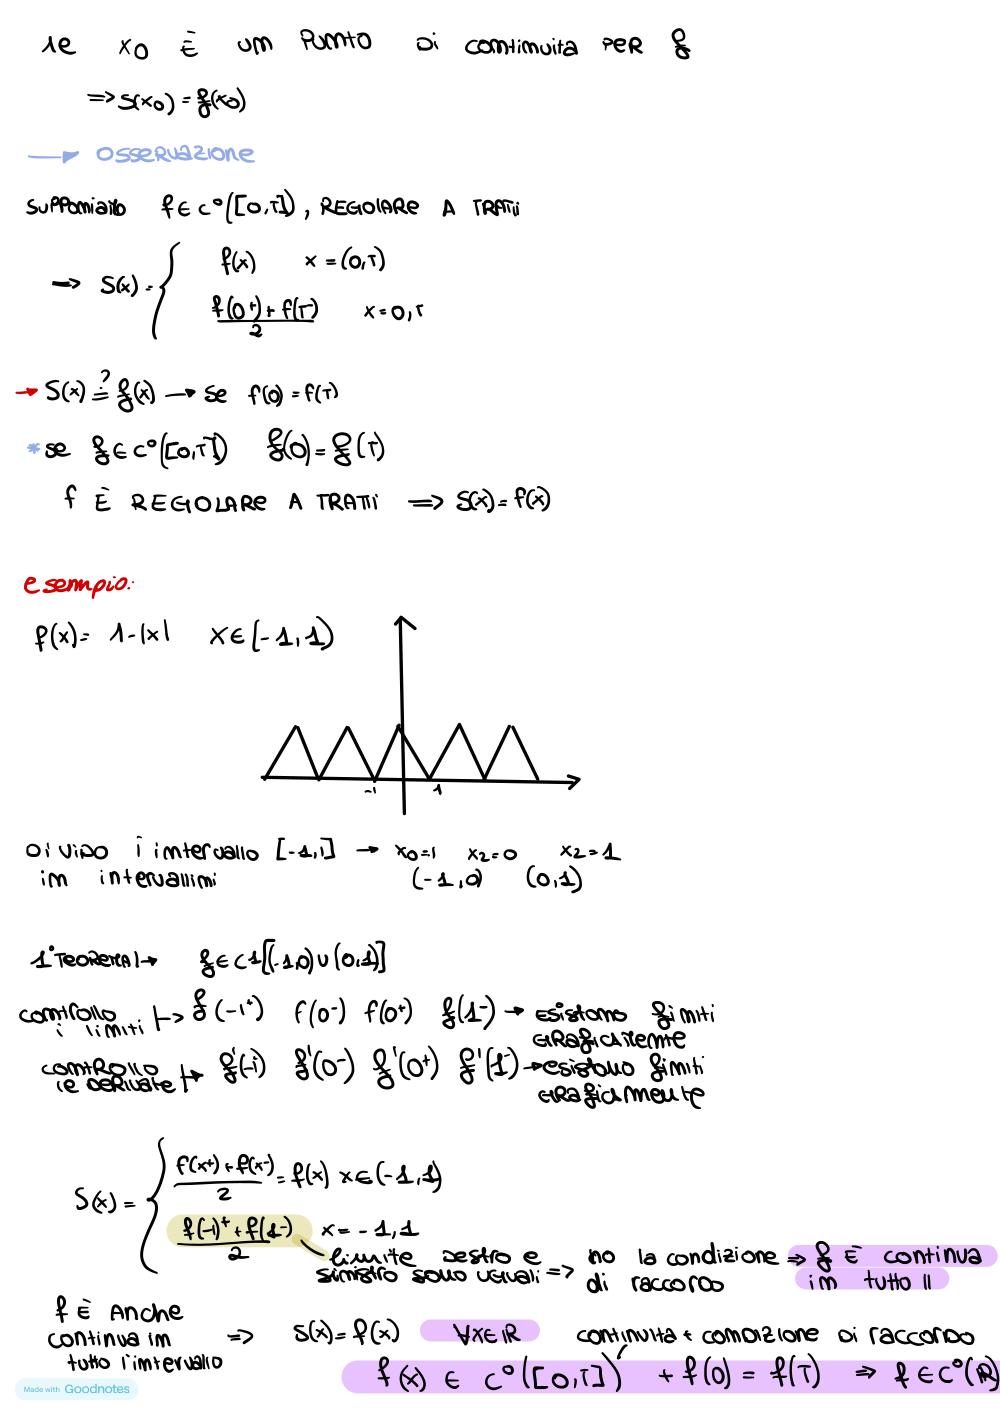 se x0 È un PUNTO Di continuita PER f
=> S(x0) = f(x0)
→ OSSERVAZIONE
SUPPoniamo f ∈ C°([0,T]), REGOLARE A TRATTi
=> S(x) = { f(x) x = (0,T)
f(0+) + f(T-) / 2 x = 0,T
→ S(x) ≟ f(x) → se f(0) = f(T)
* se f ∈ C°([0,T]) f(0) = f(T)
f È REGOLARE A TRATTi => S(x) = f(x)
esempio:
f(x) = 1-|x| x ∈ [-1,1)
-1 1
DiViDO l intervallo [-1,1] → x0=1 x2=0 x2=1
in intervallini (-1,0) (0,1)
1° TEOREMA → f ∈ C1[(-1,0) ∪ (0,1)]
controllo i limiti → f(-1+) f(0-) f(0+) f(1-) → Esistono limiti GRAFiCAMENTE
CONTROLLO le DERIVATE → f'(-1) f'(0-) f'(0+) f'(1-) → esistono limiti GRAficamente
S(x) = { f(x+) + f(x-) / 2 = f(x) x ∈ (-1,1)
f(-1)+ + f(1-) / 2 x = -1,1
limite DESTRO e sinistro sono uguali => ho la condizione di raccordo => f È continua in tutto ℝ
f È Anche continua in tutto l'intervallo => S(x) = f(x) ∀x∈ℝ continuita + condizione Di raccordo
f(x) ∈ C°([0,T]) + f(0) = f(T) => f ∈ C°(ℝ)
Made with Goodnotes